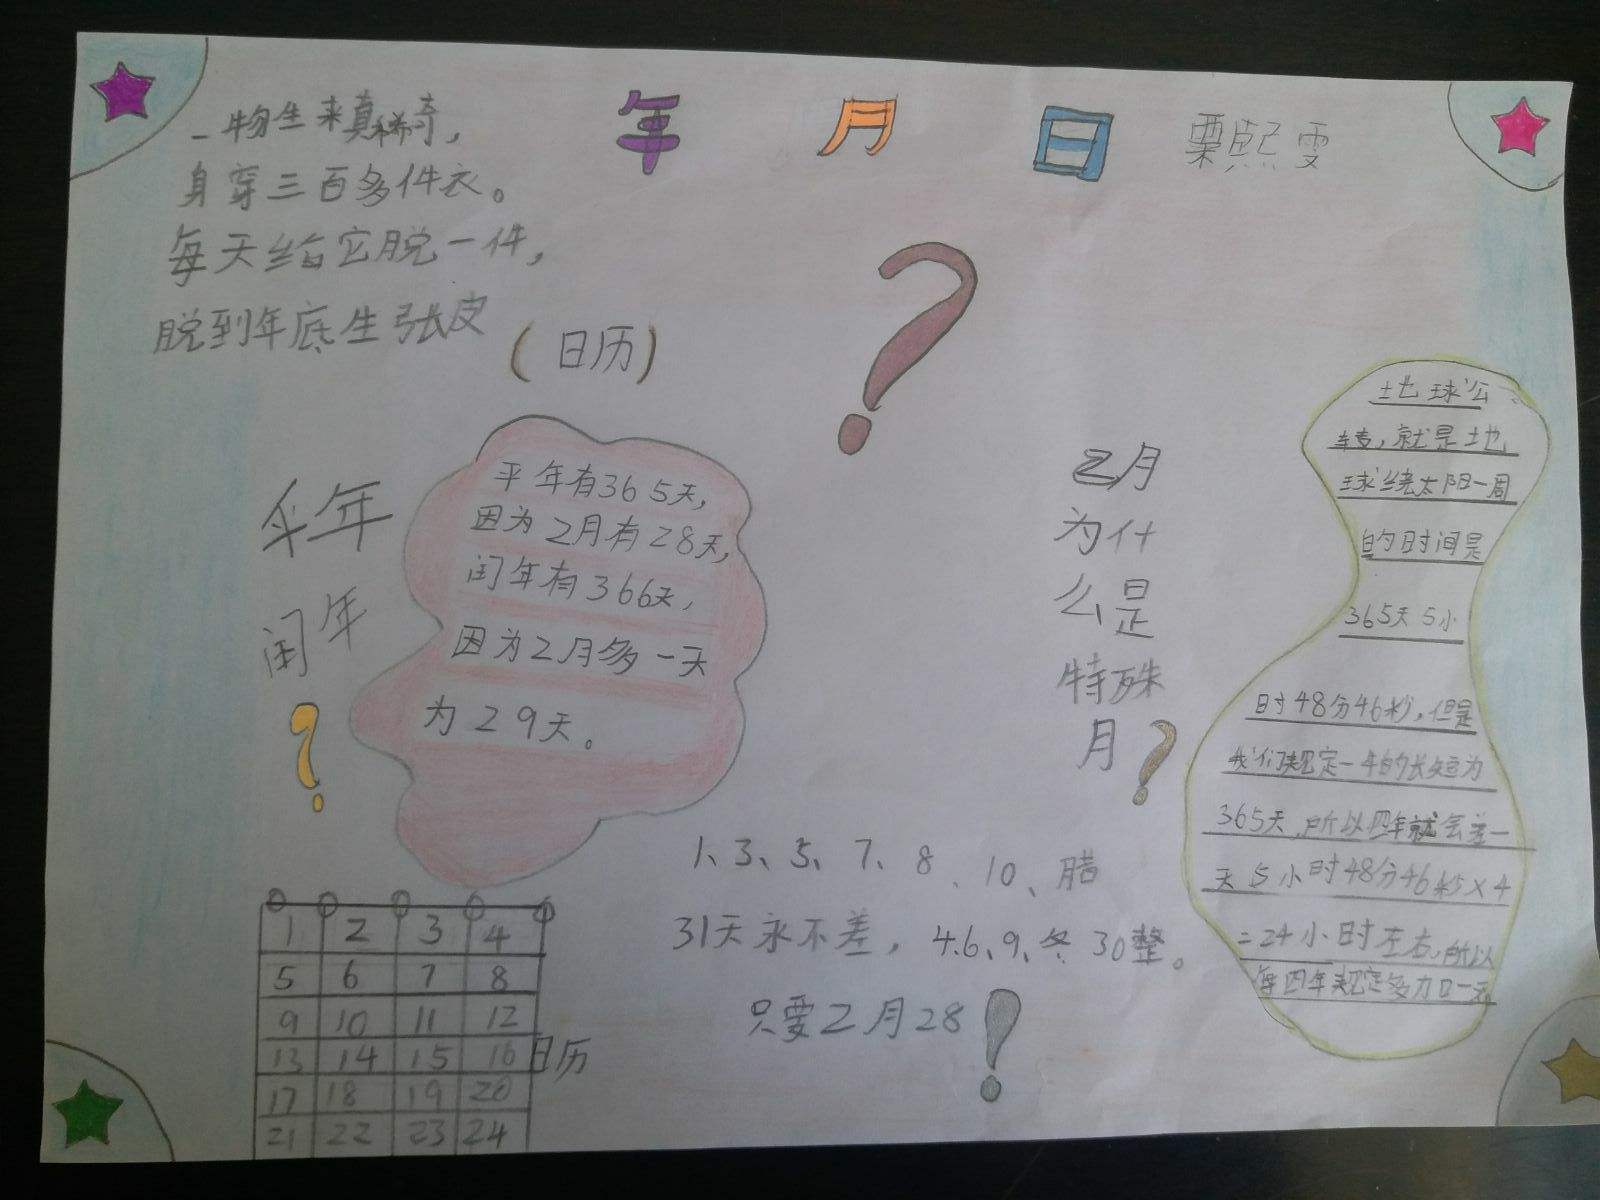 年 月 日 栗熙雯
一物生来真稀奇，
身穿三百多件衣。
每天给它脱一件，
脱到年底生张皮
（日历）
平年
闰年
？
平年有365天，
因为2月有28天，
闰年有366天，
因为2月多一天
为29天。
？
2月
为什
么是
特殊
月？
地球公
转，就是地
球绕太阳一周
的时间是
365天5小
时48分46秒，但是
我们规定一年的长短为
365天，所以四年就会差一
天5小时48分46秒×4
=24小时左右，所以
每四年规定多加一天
1、3、5、7、8、10、腊
31天永不差，4.6、9、冬30整。
只要2月28！
1 2 3 4
5 6 7 8
9 10 11 12
13 14 15 16 日历
17 18 19 20
21 22 23 24